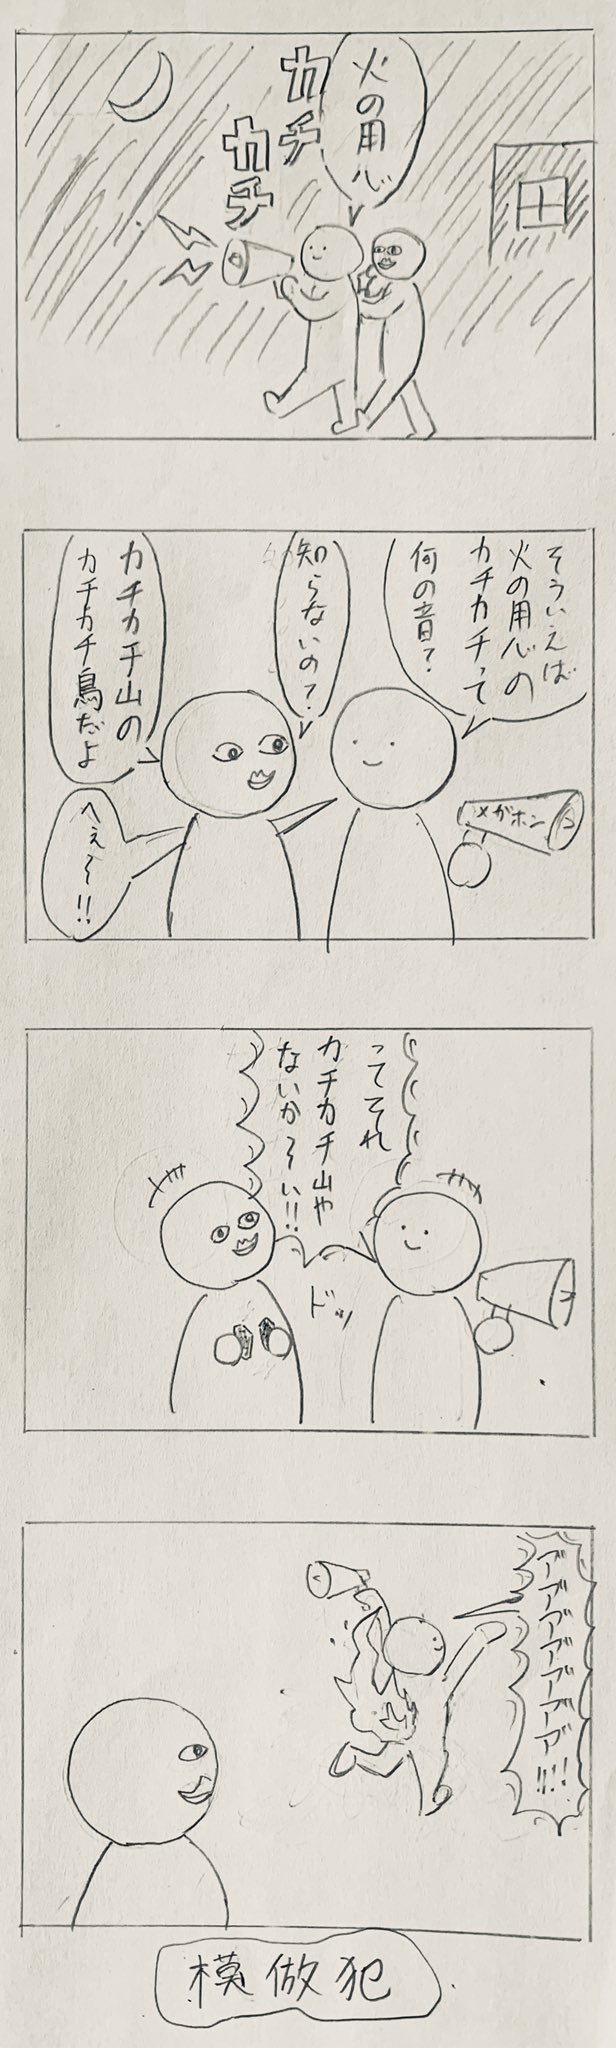 火の用心
カチ
カチ
そういえば
火の用心の
カチカチって
何の音?
知らないの?
カチカチ山の
カチカチ鳥だよ
へぇ〜!!
メガホン
ってそれ
カチカチ山や
ないか〜い!!
ドッ
アアアアアアア!!!
模倣犯